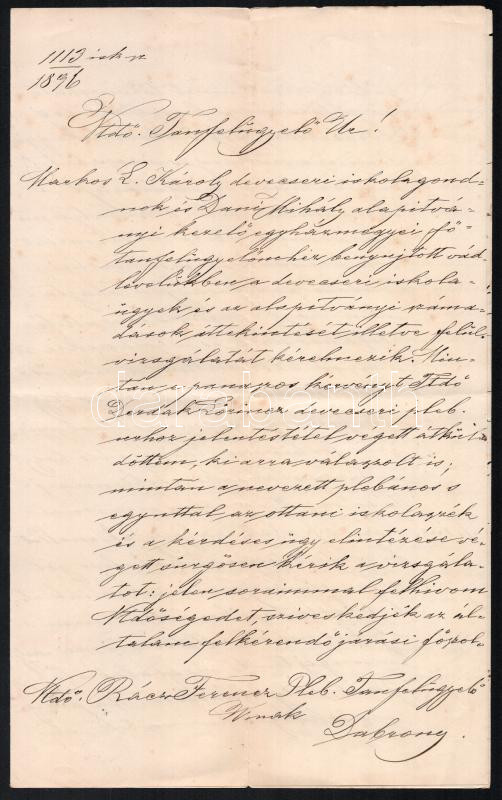 1113 isk sz
1896
Ftdő. Tanfelügyelő Ur!
Markos L. Károly devecseri iskolagond-
nok és Dani Mihály alapitvá-
nyi kezelő egyházmegyei fő-
tanfelügyelőmhéz benyujtott vád
levelükben a devecseri iskola-
ügyek és az alapitványi száma-
dások áttekintését illetve felül-
vizsgálatát kérelmezik. Miu-
tán a panaszos kérvényt Ftdő
Lőrincz devecseri pleb.
urhoz jelentéstétel végett átkül-
döttem, ki arra válaszolt is;
miután a nevezett plebános s
egyuttal az ottani iskolaszék
és a kérdéses ügy elintézése vé-
gett sürgősen kérik a vizsgála-
tot: jelen soraimmal felhivom
Ftdőségedet, sziveskedjék az ál-
talam felkérendő járási főszol-
Ftdő. Rácz Ferencz Pleb. Tanfelügyelő
Urnak
Dabrony.
darabanth